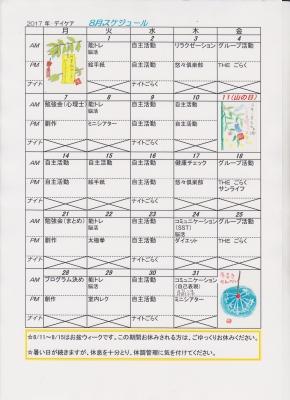 2017 年 デイケア 8月スケジュール
月 火 水 木 金
1 2 3 4
AM 能トレ 自主活動 リラクゼーション グループ活動
脳活
PM 絵手紙 自主活動 悠々倶楽部 THE ごらく
ナイト ナイトごらく
7 8 9 10 11(山の日)
AM 勉強会(心理士) 能トレ 自主活動 自主活動
脳活
PM 創作 ミニシアター 自主活動 自主活動
ナイト ナイトごらく
14 15 16 17 18
AM 自主活動 自主活動 自主活動 健康チェック グループ活動
PM 自主活動 絵手紙 自主活動 悠々倶楽部 THE ごらく
サンライフ
ナイト ナイトごらく
21 22 23 24 25
AM 勉強会(まとめ) 能トレ 自主活動 コミュニケーション グループ活動
脳活 (SST)
脳活
PM 創作 太極拳 自主活動 ダイエット THE ごらく
ナイト ナイトごらく
28 29 30 31
AM プログラム決め 能トレ 自主活動 コミュニケーション
脳活 (自己表現)
PM 創作 室内レク 自主活動 ミニシアター
ナイト ナイトごらく
☆8/11～8/15はお盆ウィークです。この期間お休みされる方は、ごゆっくりお休みください。
☆暑い日が続きますが、休息を十分とり、体調管理に気を付けてください。